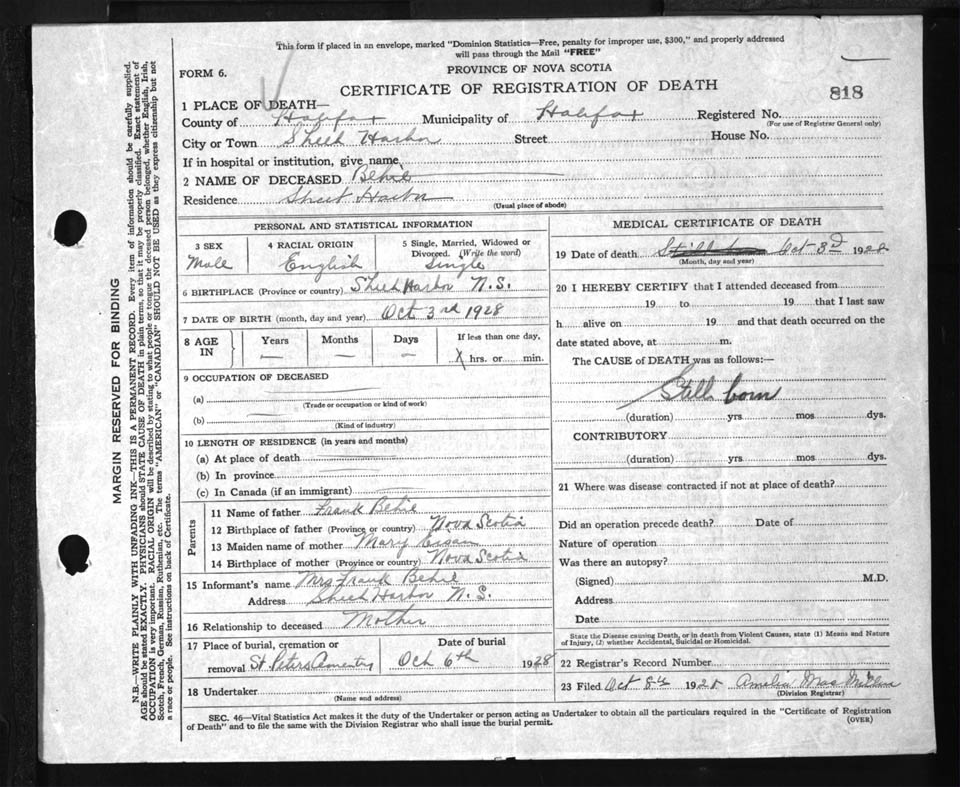 This form if placed in an envelope, marked "Dominion Statistics—Free, penalty for improper use, $300," and properly addressed
will pass through the Mail "FREE"
PROVINCE OF NOVA SCOTIA
FORM 6.
CERTIFICATE OF REGISTRATION OF DEATH
818
1 PLACE OF DEATH—
County of Halifax Municipality of Halifax Registered No.
(For use of Registrar General only)
City or Town Sheet Harbor Street House No.
If in hospital or institution, give name
2 NAME OF DECEASED Behie
Residence Sheet Harbor
(Usual place of abode)
PERSONAL AND STATISTICAL INFORMATION
3 SEX 4 RACIAL ORIGIN 5 Single, Married, Widowed or
Divorced. (Write the word)
Male English Single
6 BIRTHPLACE (Province or country) Sheet Harbor N.S.
7 DATE OF BIRTH (month, day and year) Oct 3rd 1928
8 AGE IN Years Months Days If less than one day,
X hrs. or min.
9 OCCUPATION OF DECEASED
(a)
(Trade or occupation or kind of work)
(b)
(Kind of industry)
10 LENGTH OF RESIDENCE (in years and months)
(a) At place of death
(b) In province
(c) In Canada (if an immigrant)
Parents
11 Name of father Frank Behie
12 Birthplace of father (Province or country) Nova Scotia
13 Maiden name of mother Mary
14 Birthplace of mother (Province or country) Nova Scotia
15 Informant's name Mrs Frank Behie
Address Sheet Harbor N.S.
16 Relationship to deceased Mother
17 Place of burial, cremation or Date of burial
removal St Peters Oct 6th 1928
18 Undertaker
(Name and address)
MEDICAL CERTIFICATE OF DEATH
19 Date of death Oct 3rd 1928
(Month, day and year)
20 I HEREBY CERTIFY that I attended deceased from
19 to 19 that I last saw
h alive on 19 and that death occurred on the
date stated above, at m.
The CAUSE of DEATH was as follows:—
Still born
(duration) yrs mos dys.
CONTRIBUTORY
(duration) yrs mos dys.
21 Where was disease contracted if not at place of death?
Did an operation precede death? Date of
Nature of operation
Was there an autopsy?
(Signed) M.D.
Address
Date
State the Disease causing Death, or in death from Violent Causes, state (1) Means and Nature
of Injury, (2) whether Accidental, Suicidal or Homicidal.
22 Registrar's Record Number
23 Filed Oct 8th 1928 Amelia
(Division Registrar)
SEC. 46—Vital Statistics Act makes it the duty of the Undertaker or person acting as Undertaker to obtain all the particulars required in the "Certificate of Registration
of Death" and to file the same with the Division Registrar who shall issue the burial permit.
(OVER)
MARGIN RESERVED FOR BINDING
N.B.—WRITE PLAINLY WITH UNFADING INK—THIS IS A PERMANENT RECORD. Every item of information should be carefully supplied.
AGE should be stated EXACTLY. PHYSICIANS should STATE CAUSE OF DEATH in plain terms, so that it may be properly classified. Exact statement of
OCCUPATION is very important. RACIAL ORIGIN will be described by stating to what people or tongue the deceased person belonged, whether English, Irish,
Scotch, French, German, Russian, Ruthenian, etc. The terms "AMERICAN" or "CANADIAN" SHOULD NOT BE USED as they express citizenship but not
a race or people. See instructions on back of Certificate.